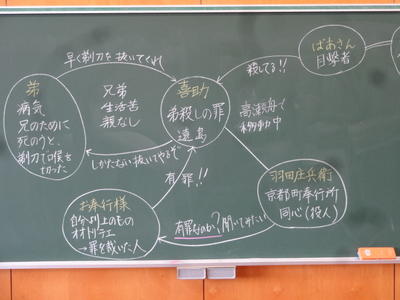 早く剃刀を抜いてくれ
弟
病気
兄のために
死のうと、
剃刀で喉を
切った
兄弟
生活苦
親なし
しかたない抜いてやるぞ
喜助
弟殺しの罪
遠島
殺してる!!
ばあさん
目撃者
高瀬舟で
中
有罪!!
お奉行様
自分より上のもの
オオトリテエ
→罪を裁いた人
有罪なのか?聞いてみたい
羽田庄兵衛
京都町奉行所
同心(役人)